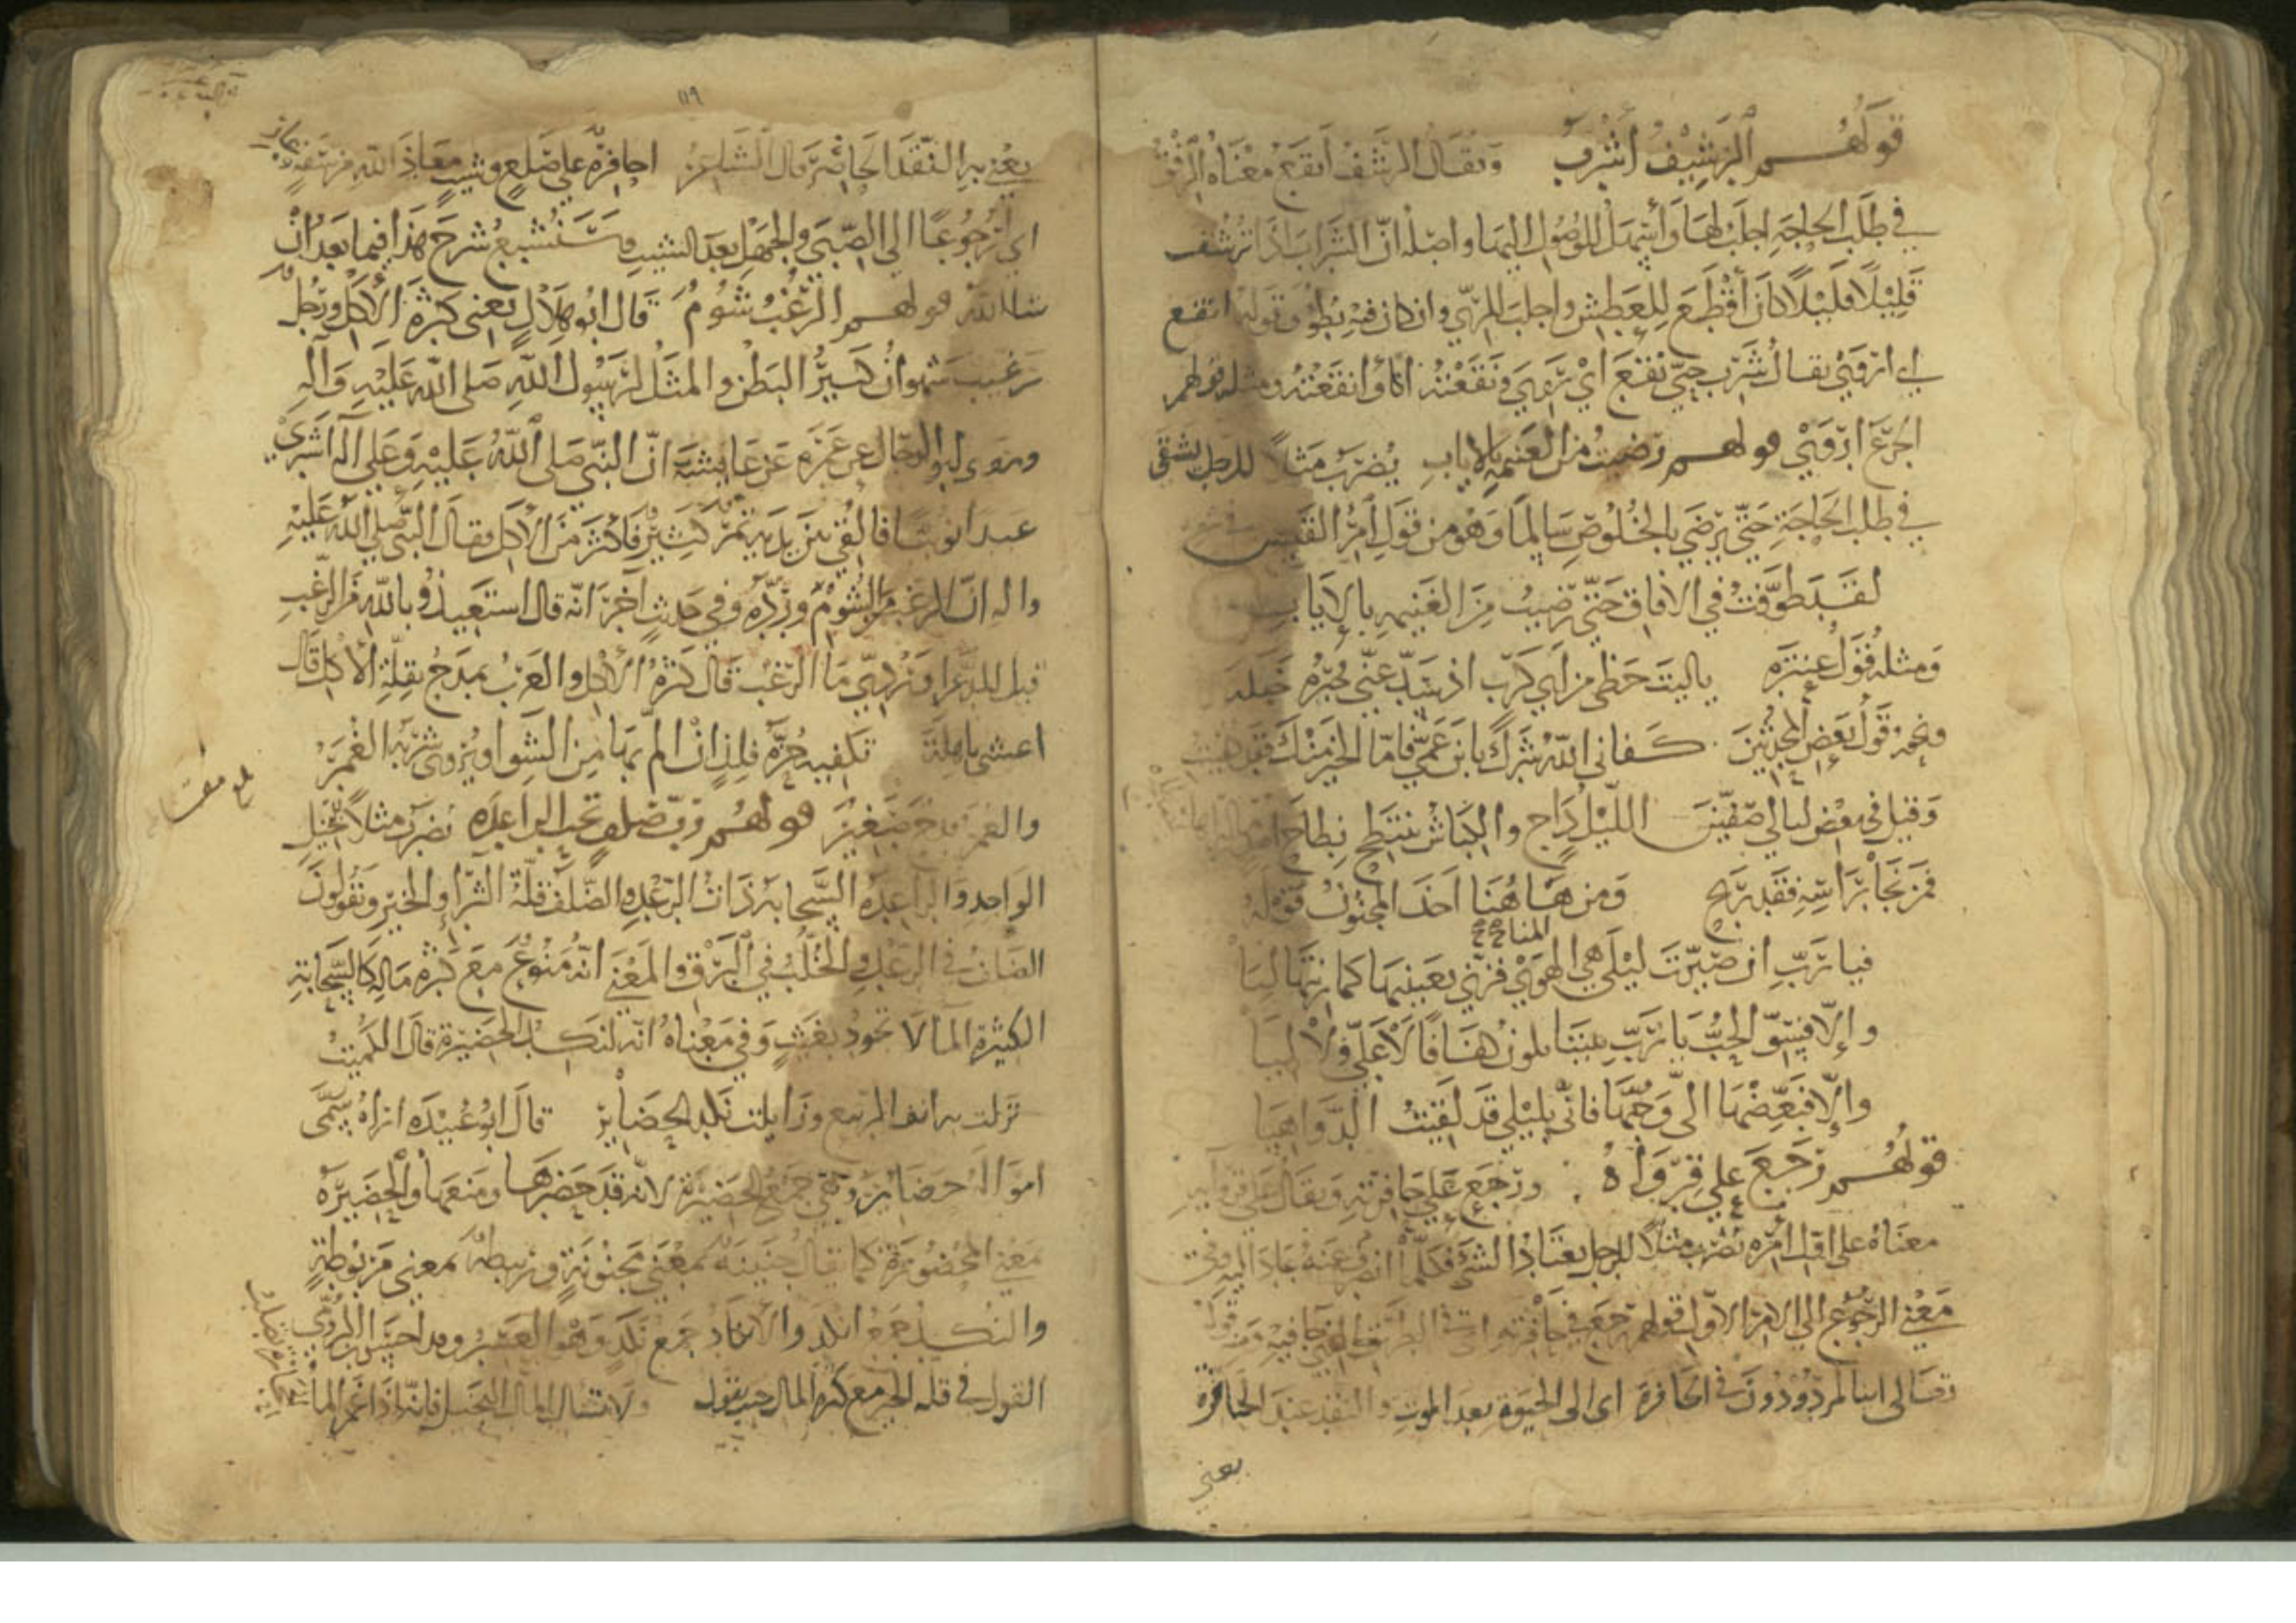 قولهم الرشيف أشرب ويقال الرشف أنقع معناه الرفق
في طلب الحاجة اجلب لها وأسهل للوصول اليها واصله ان الشراب اذا ترشف
قليلا قليلا كان أقطع للعطش واجلب للري وان كان فيه بطؤ وقوله انقع
اي اروى يقال شرب حتى نقع اي روي ونقعته انا وانقعته ومثله قولهم
الجرع اروى قولهم رضيت من الغنيمة بالاياب يضرب مثلا للرجل يشقى
في طلب الحاجة حتى يرضى بالخلوص سالما وهو من قول امرئ القيس
لقد طوفت في الافاق حتى رضيت من الغنيمة بالاياب
ومثله قول عنترة يا ليت حظي من ابي كرب اذ سد عني خيره خبله
ونحوه قول بعض المحدثين كفاني الله شرك يا بن عمي فاما الخير منك فقد
وقيل في بعض ليالي صفين الليل داج والكباش تنتطح نطاح
فمن نجا براسه فقد ربح ومن هاهنا اخذ المجنون قوله
المنا
فيا رب ان صيرت ليلى هي الهوى فزني بعينيها كما زنتها ليا
وإلا فسو الحب يا رب بيننا يكون كفافا لا علي ولا ليا
وإلا فبغضها الي وحبها فاني بليلى قد لقيت الدواهيا
قولهم رجع على قرواه ورجع على حافرته ويقال على
معناه على اول امره يضرب مثلا للرجل يعتاد الشئ فكلما انصرف عنه عاد اليه وفي
معنى الرجوع الى الامر الاول قولهم رجع في حافرته اي في الطريق التي جا فيه ومنه قوله
تعالى اينا لمردودون في الحافرة اي الى الحيوة بعد الموت والنقد عند الحافرة
يعني
١١٩
يعني به النقد الحاضر قال الشاعر احافرة على صلع وشيب معاذ الله من سفه وعار
اي ارجوعا الى الصبى والجهل بعد الشيب وسنشبع شرح هذا فيما بعد ان
شا الله قولهم الرغب شوم قال ابو هلال يعني كثرة الاكل ورجل
رغيب شهوان كبير البطن والمثل لرسول الله صلى الله عليه وآله
وروى ابو الرجال عن عمرة عن عايشة ان النبي صلى الله عليه وعلى آله اشترى
عبدا نوبيا فالقى بين يديه تمر كثير فاكثر من الاكل فقال النبي صلى الله عليه
واله ان الرغب من الشوم ورده وفي حديث آخر انه قال استعيذوا بالله من الرغب
قيل للاعرابي ما الرغب قال كثرة الاكل والعرب تمدح بقلة الاكل قال
اعشى باهلة تكفيه حزة فلذ ان الم بها من الشوا ويروي شربه الغمر
والغمر قدح صغير قولهم رب صلف تحت الراعدة يضرب مثلا للبخيل
الواجد والراعدة السحابة ذات الرعد والصلف قلة النزل والخير ويقولون
الصلف في الرعد والخلب في البرق والمعنى انه ممنوع مع كثرة ماله كالسحابة
الكثيرة الما لا تجود بغيث وفي معناه انه لنكد الحضيرة قال الكميت
نزلت به انف الربيع وزايلت نكد الحضاير قال ابو عبيدة اراه سمى
امواله حضاير وهي جمع الحضيرة لانه قد حضرها ومنعها والحضيرة
معنى المحضورة كما يقال جنينة بمعنى مجنونة وربيطة بمعنى مربوطة
والنكد جمع انكد والانكاد جمع نكد وهو العسر وقد احسن ابن الرومي
القول في قلة الخير مع كثرة المال حين يقول ولا